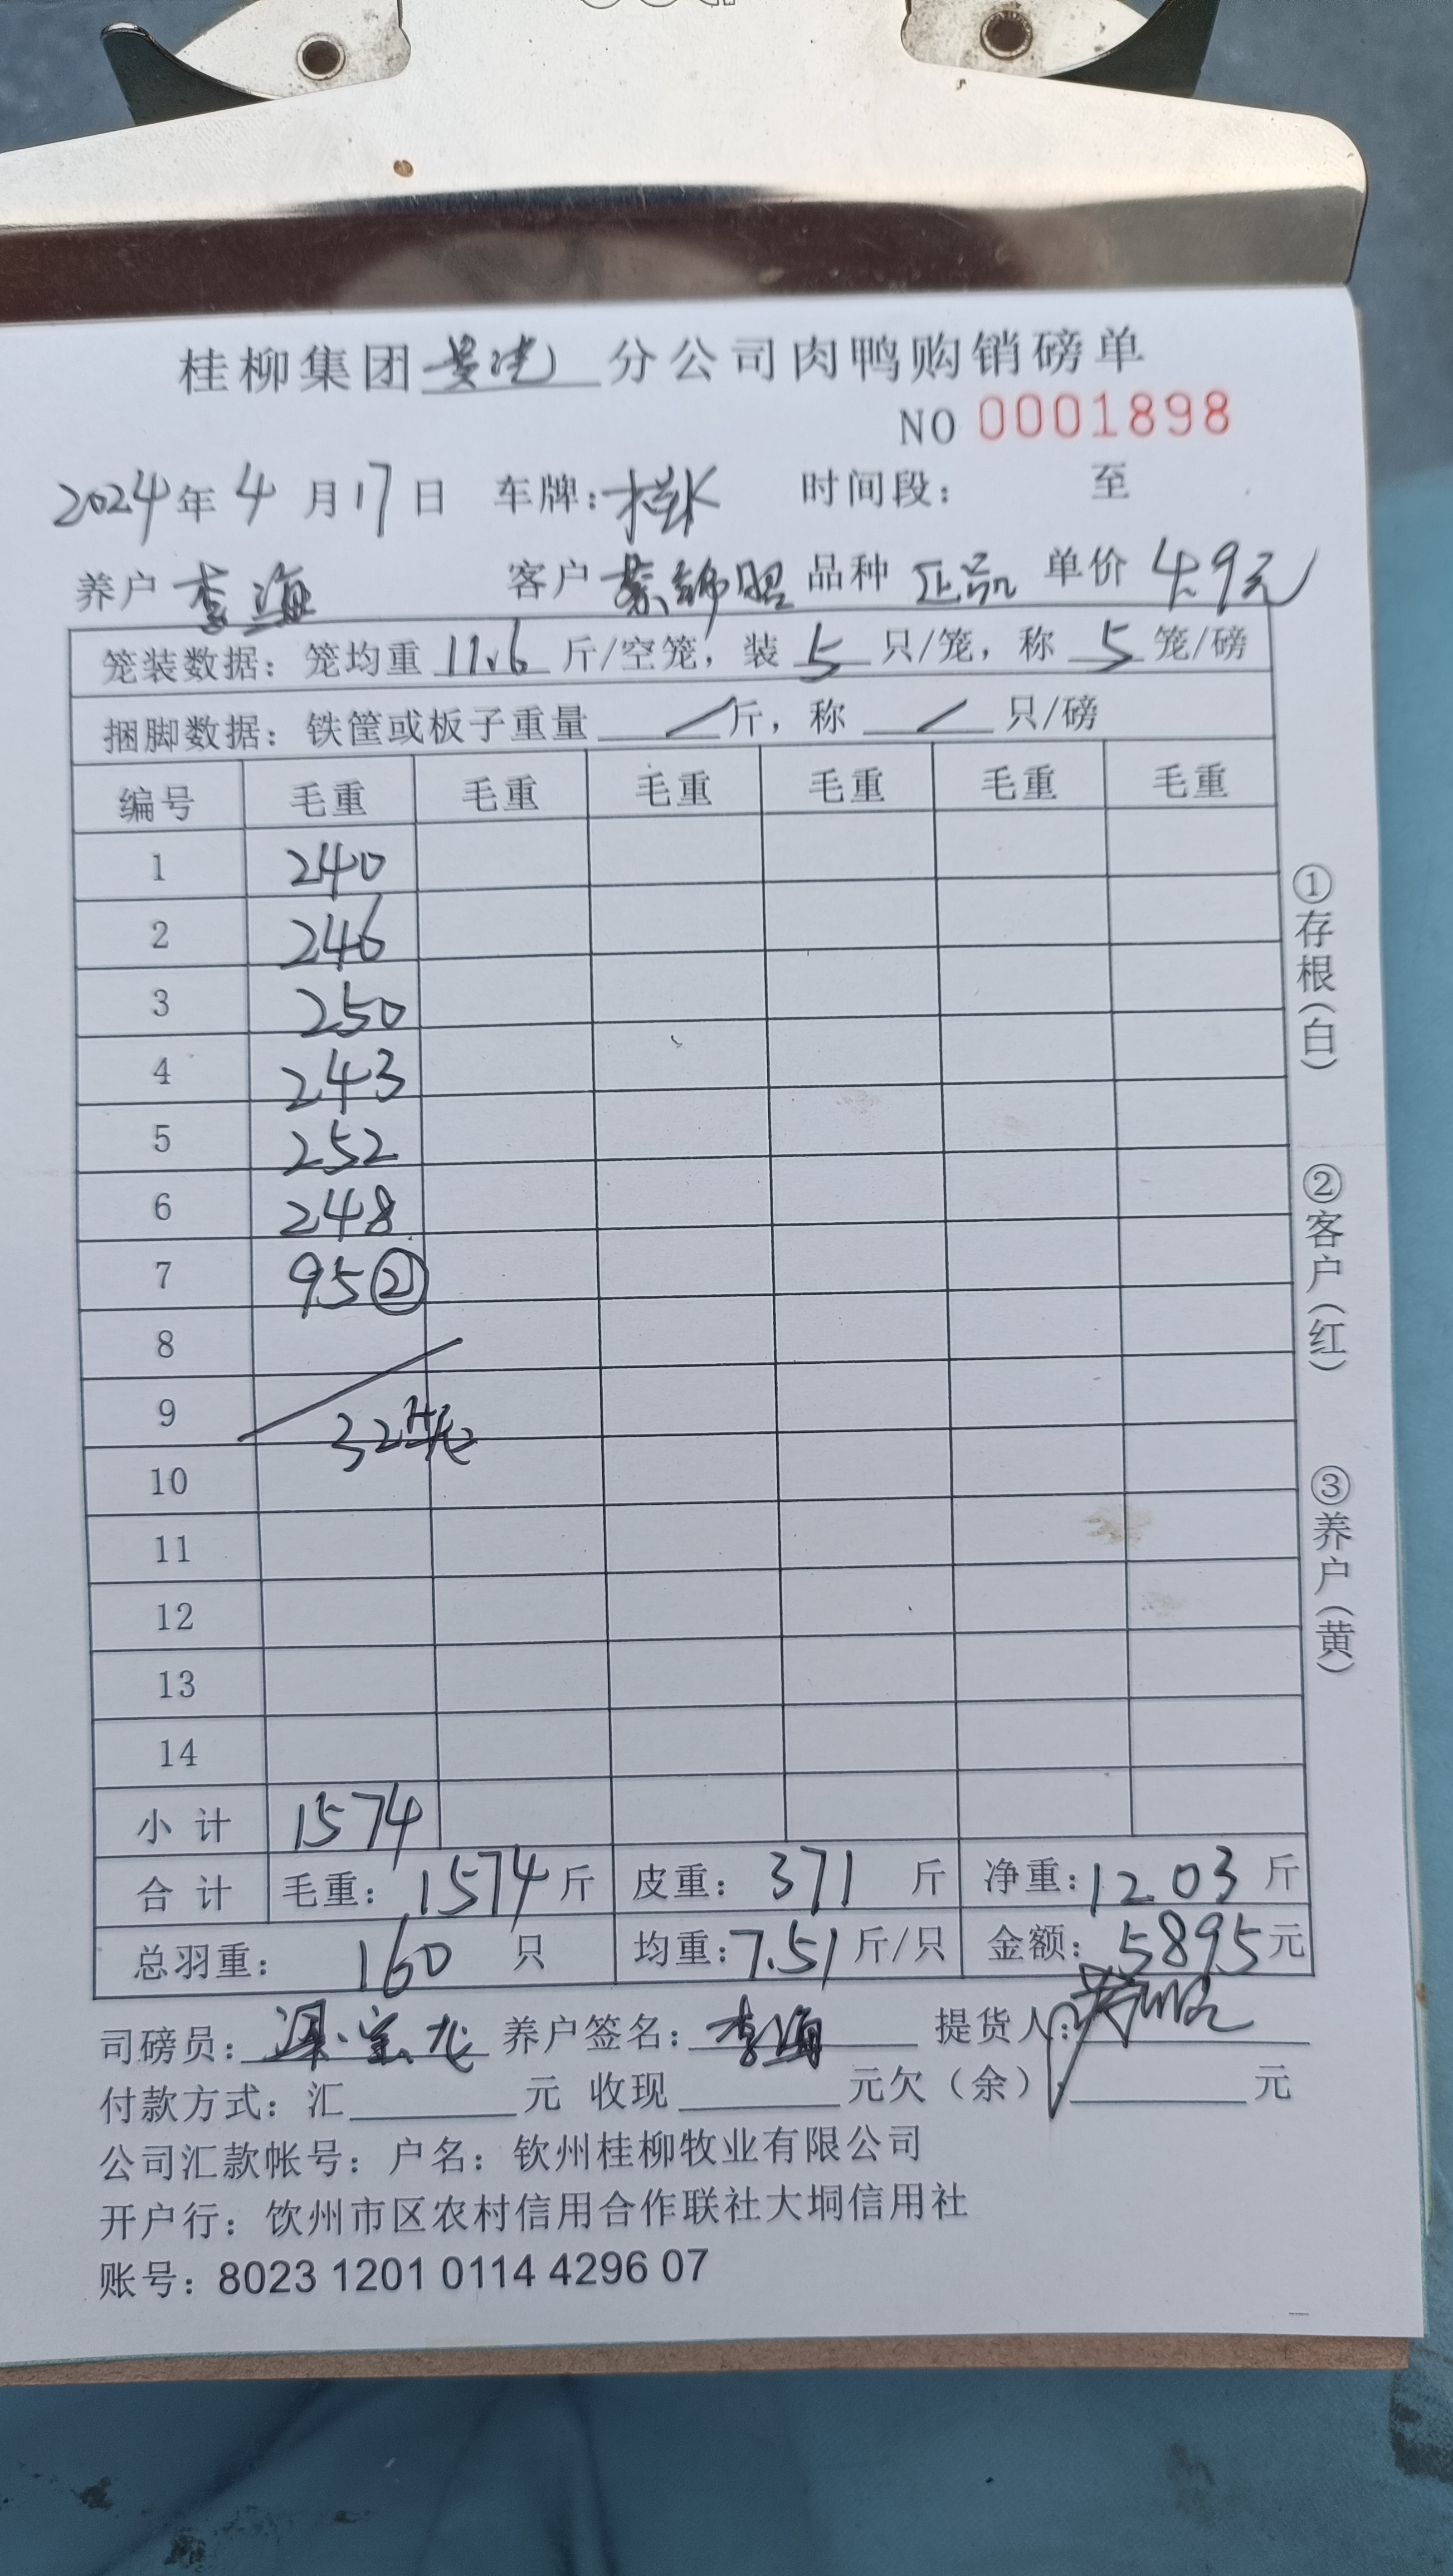 桂柳集团 分公司肉鸭购销磅单
NO 0001898
2024年 4 月 17 日 车牌: 时间段: 至
养户 李海 客户 品种 正品 单价 4.9元
笼装数据: 笼均重 11.6 斤/空笼, 装 5 只/笼, 称 5 笼/磅
捆脚数据: 铁筐或板子重量 / 斤, 称 / 只/磅
编号 毛重 毛重 毛重 毛重 毛重 毛重
1 240
2 246
3 250
4 243
5 252
6 248
7 95②
8
9 32笼
10
11
12
13
14
小计 1574
合计 毛重: 1574 斤 皮重: 371 斤 净重: 1203 斤
总羽重: 160 只 均重: 7.51 斤/只 金额: 5895 元
司磅员: 梁宝龙 养户签名: 李海 提货人:
付款方式: 汇 元 收现 元欠(余) 元
公司汇款帐号: 户名: 钦州桂柳牧业有限公司
开户行: 饮州市区农村信用合作联社大垌信用社
账号: 8023 1201 0114 4296 07
①存根(白)
②客户(红)
③养户(黄)